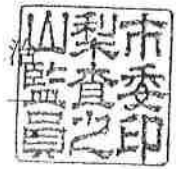 山梨市
監査委
員之印